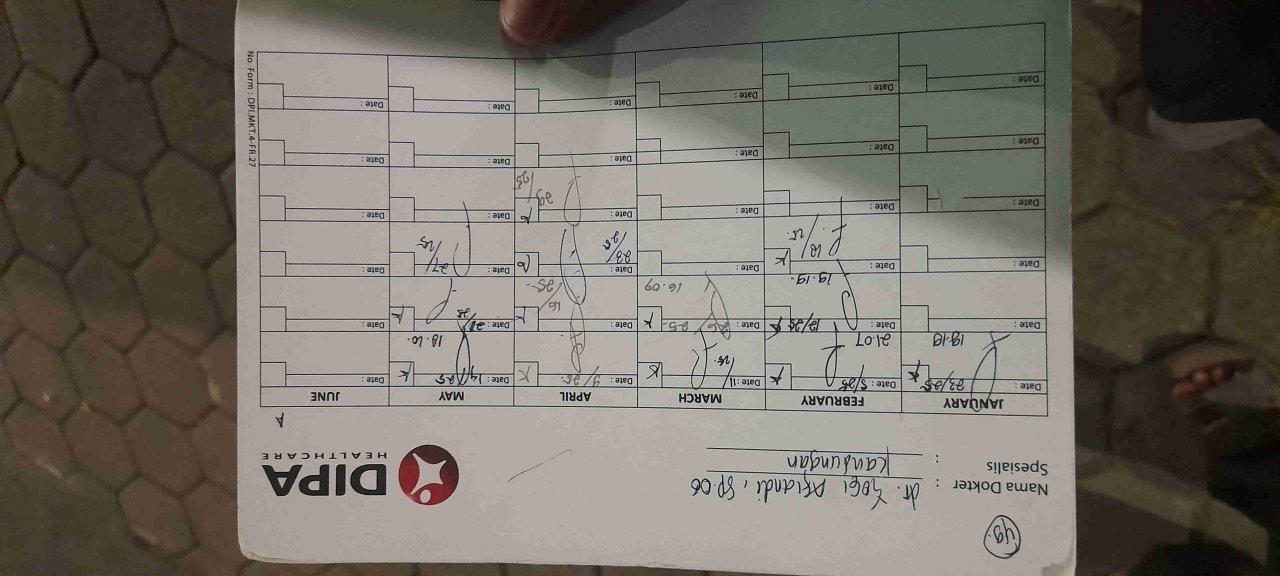 49.
Nama Dokter : dr. Yogi Afriandi, SP.OG
Spesialis : Kandungan
DIPA
HEALTHCARE
A
JANUARY FEBRUARY MARCH APRIL MAY JUNE
Date : 23/25 K Date : 5/25 K Date : 11/25. K Date : 9/25. K Date : 14/25 K Date :
19.19 21.07 18.10.
Date : Date : 12/25 K Date : 26/25 K Date : 16/25 K Date : 21/25 K Date :
19.19. 16.09
Date : Date : 18/25. K Date : Date : 23/25 Date : 27/25 Date :
Date : Date : Date : Date : 29/25 Date : Date :
Date : Date : Date : Date : Date : Date :
Date : Date : Date : Date : Date : Date :
No. Form : DPI.MKT.4-FR.27